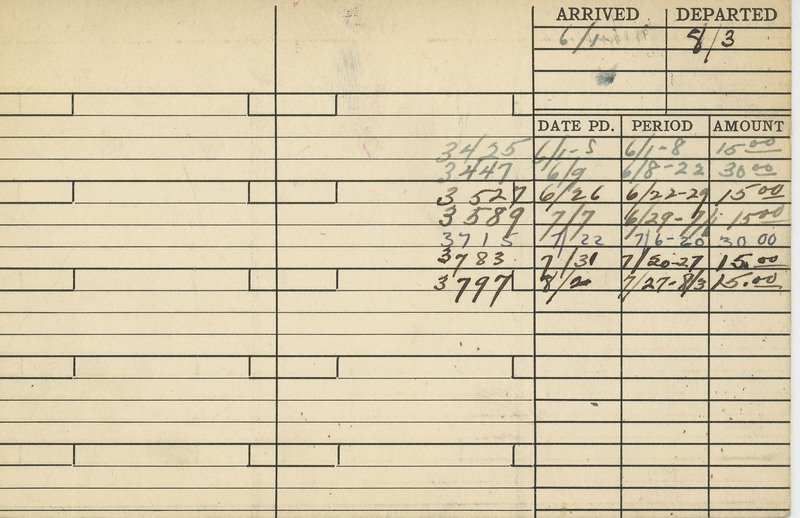 ARRIVED DEPARTED
6/1 8/3
DATE PD. PERIOD AMOUNT
3425 6/1-5 6/1-8 15 00
3447 6/9 6/8-22 30 00
3527 6/26 6/22-29 15 00
3589 7/7 6/29-7/ 15 00
3715 7/22 7/6-20 30 00
3783 7/31 7/20-27 15.00
3797 8/2 7/27-8/3 15.00